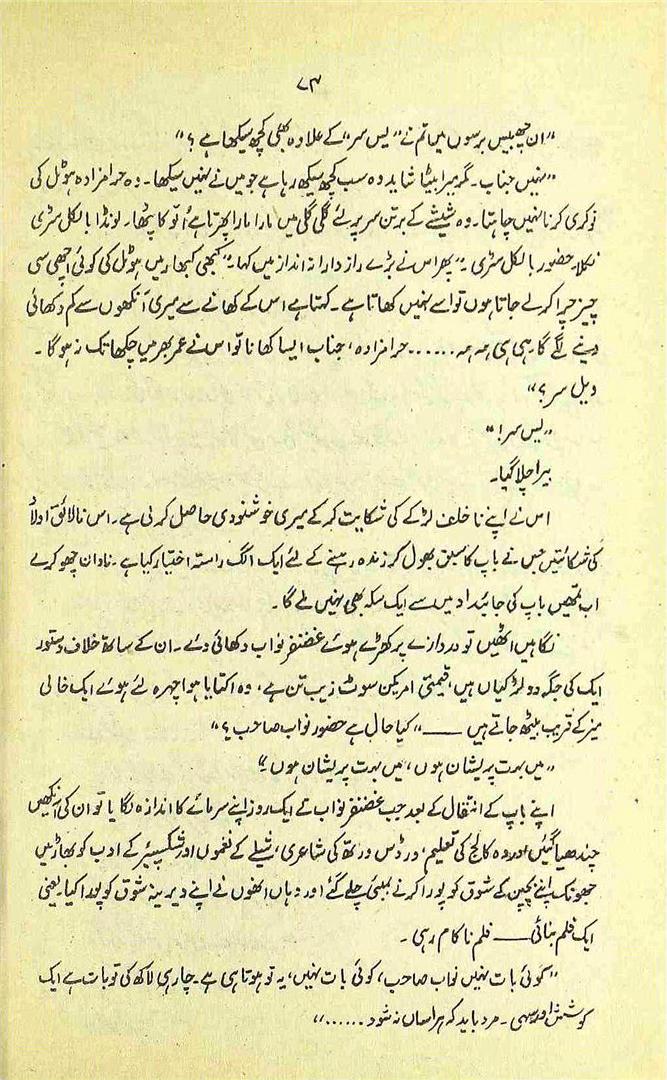 ۷۳
"ان چھبیس برسوں میں تم نے "یس سر" کے علاوہ بھی کچھ سیکھا ہے؟"
"نہیں جناب۔ مگر میرا بیٹا شاید وہ سب کچھ سیکھ رہا ہے جو میں نے نہیں سیکھا۔ وہ حرامزادہ ہوٹل کی
نوکری کرنا نہیں چاہتا۔ وہ شیشے کے برتن سر پر لئے گلی گلی میں مارا مارا پھرتا ہے اُلّو کا پٹھا۔ لونڈا بالکل سڑی
نکلا۔ حضور بالکل سڑی۔" پھر اس نے بڑے رازدارانہ انداز میں کہا۔ "کبھی کبھار میں ہوٹل کی کوئی اچھی سی
چیز چرا کر لے جاتا ہوں تو اسے نہیں کھاتا ہے۔ کہتا ہے اس کے کھانے سے میری آنکھوں سے کم دکھائی
دینے لگے گا۔ ہی ہی ہہ ہہ...... حرامزادہ، جناب ایسا کھانا تو اس نے عمر بھر میں چکھا تک نہ ہوگا۔
ویل سر؟"
"یس سر!"
بیرا چلا گیا۔
اس نے اپنے ناخلف لڑکے کی شکایت کر کے میری خوشنودی حاصل کرلی ہے۔ اس نالائق اولاد
کی شکائتیں جس نے باپ کا سبق بھول کر زندہ رہنے کے لئے ایک الگ راستہ اختیار کیا ہے۔ نادان چھوکرے
اب تمھیں باپ کی جائیداد میں سے ایک سکہ بھی نہیں ملے گا۔
نگاہیں اٹھیں تو دروازے پر کھڑے ہوئے غضنفر نواب دکھائی دئے۔ ان کے ساتھ خلاف دستور
ایک کی جگہ دو لڑکیاں ہیں، قیمتی امریکن سوٹ زیب تن ہے، وہ اکتایا ہوا چہرہ لئے ہوئے ایک خالی
میز کے قریب بیٹھ جاتے ہیں —— "کیا حال ہے حضور نواب صاحب؟"
"میں بہت پریشان ہوں، میں بہت پریشان ہوں۔"
اپنے باپ کے انتقال کے بعد جب غضنفر نواب نے ایک روز اپنے سرمائے کا اندازہ لگایا تو ان کی آنکھیں
چندھیا گئیں اور وہ کالج کی تعلیم، ورڈس ورتھ کی شاعری، شیلے کے نغموں اور شیکسپیئر کے ادب کو بھاڑ میں
جھونک اپنے بچپن کے شوق کو پورا کرنے بمبئی چلے گئے اور وہاں انھوں نے اپنے دیرینہ شوق کو پورا کیا۔ یعنی
ایک فلم بنائی —— فلم ناکام رہی۔
"کوئی بات نہیں نواب صاحب، کوئی بات نہیں، یہ تو ہوتا ہی ہے۔ چار ہی لاکھ کی تو بات ہے ایک
کوشش اور سہی۔ مرد باید کہ ہراساں نہ شود......"